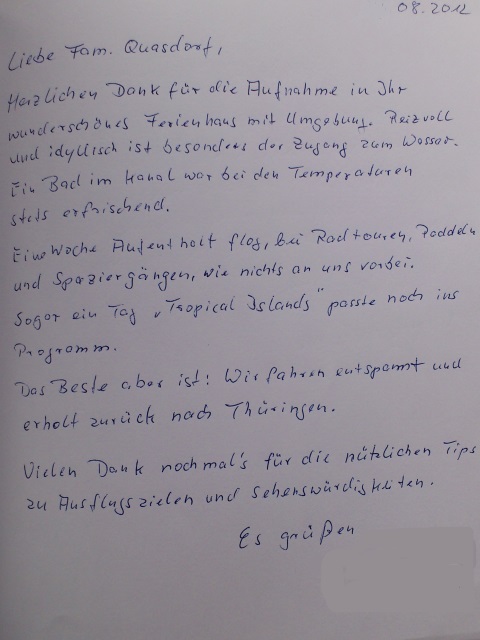 08.2012
Liebe Fam. Quasdorf,
Herzlichen Dank für die Aufnahme in Ihr
wunderschönes Ferienhaus mit Umgebung. Reizvoll
und idyllisch ist besonders der Zugang zum Wasser.
Ein Bad im Kanal war bei den Temperaturen
stets erfrischend.
Eine Woche Aufenthalt flog, bei Radtouren, Paddeln
und Spaziergängen, wie nichts an uns vorbei.
Sogar ein Tag „Tropical Islands" passte noch ins
Programm.
Das Beste aber ist: Wir fahren entspannt und
erholt zurück nach Thüringen.
Vielen Dank nochmal's für die nützlichen Tips
zu Ausflugszielen und Sehenswürdigkeiten.
Es grüßen